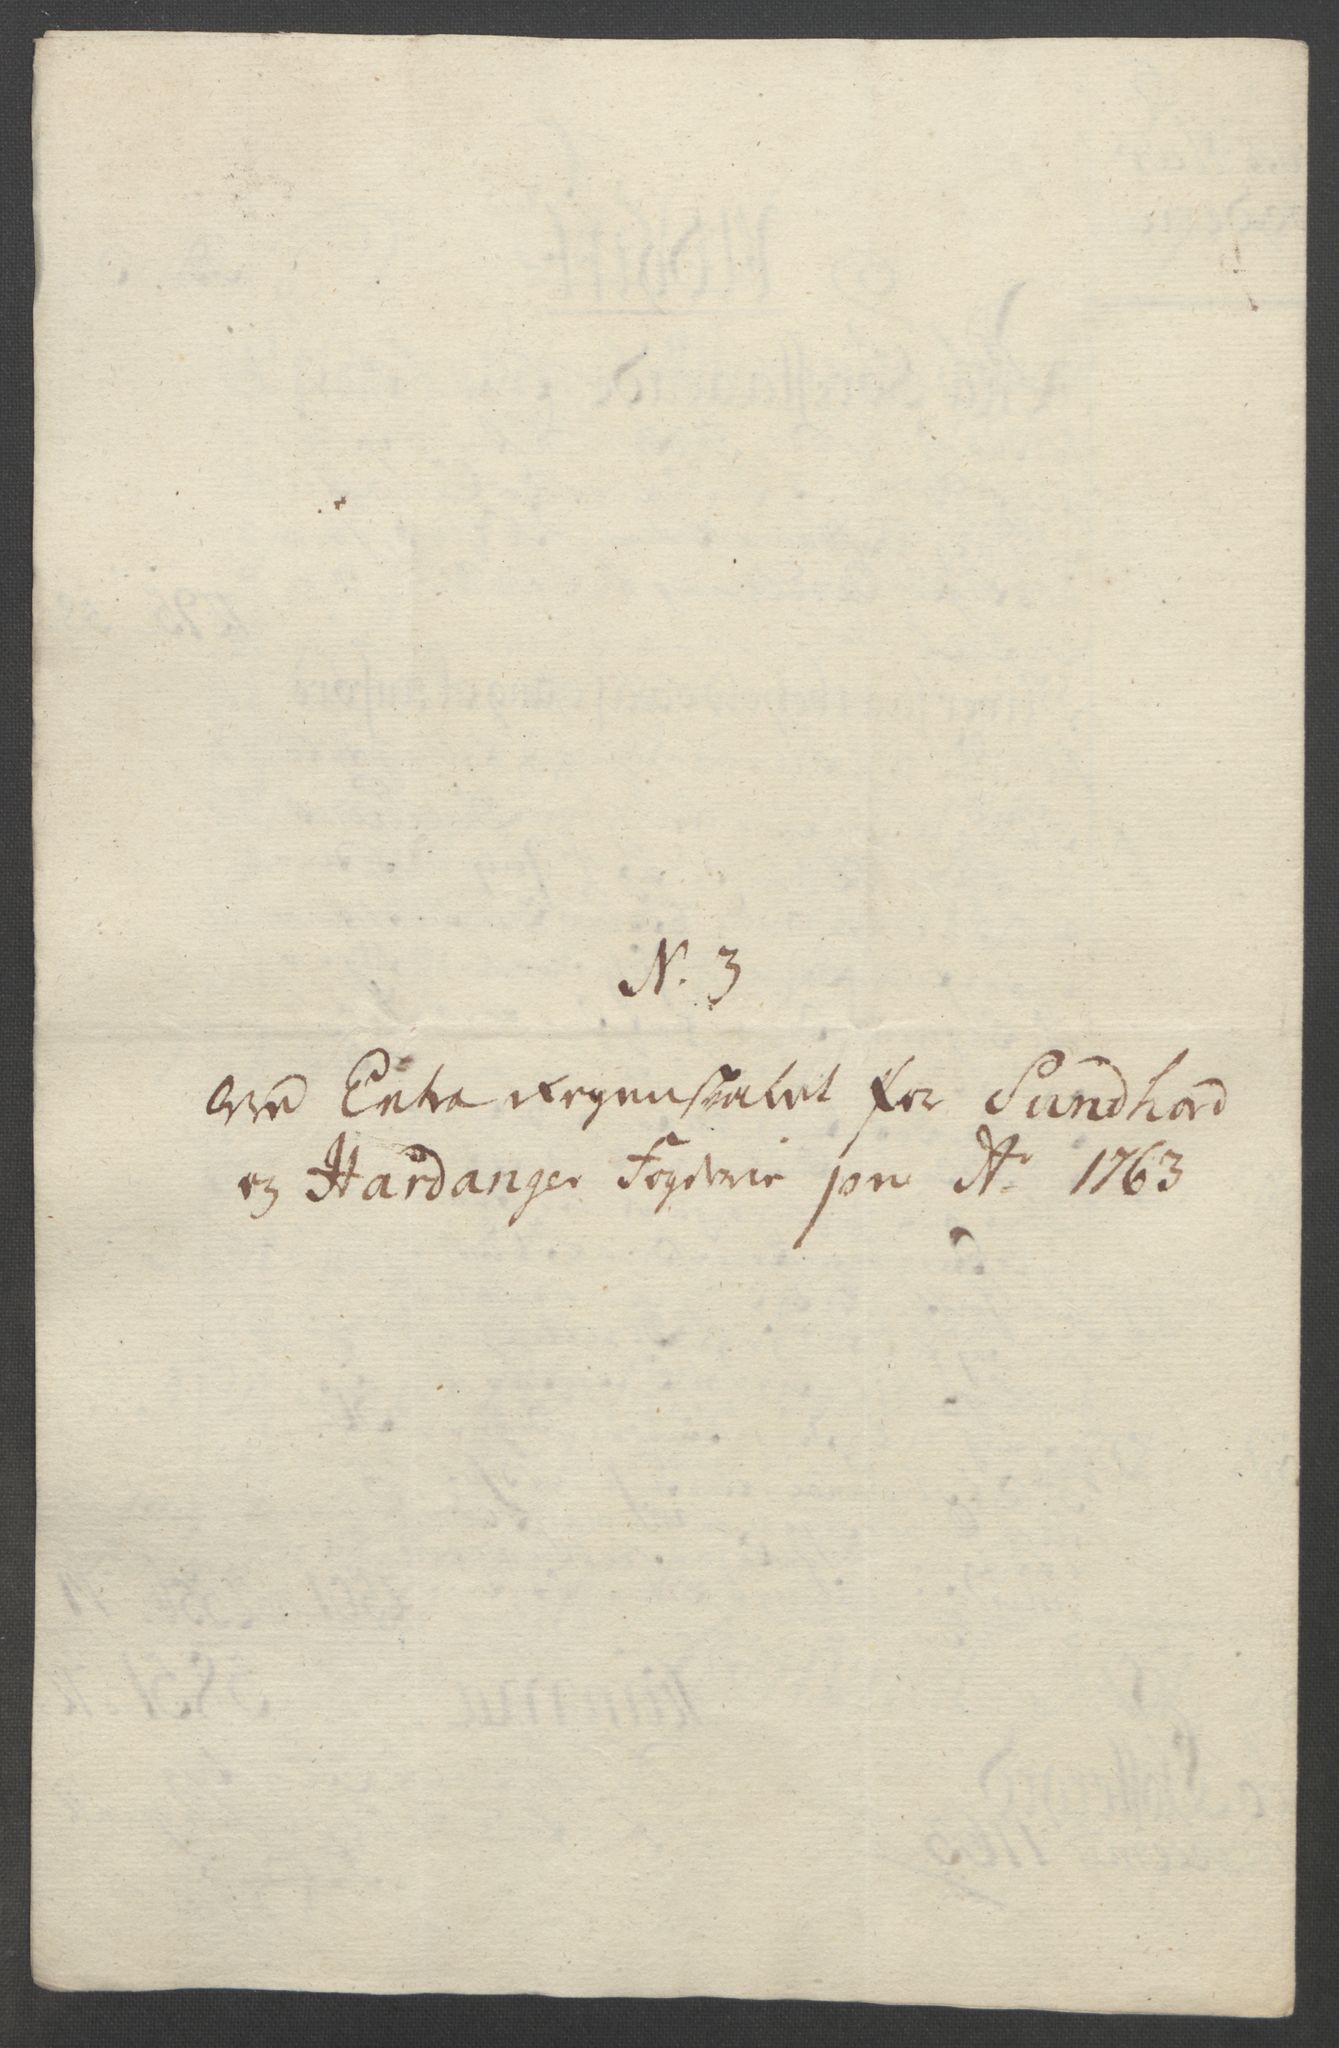 N. 3
ved Extra regenskabet for Sundhord
og Hardanger Fogderie pro Ao 1763